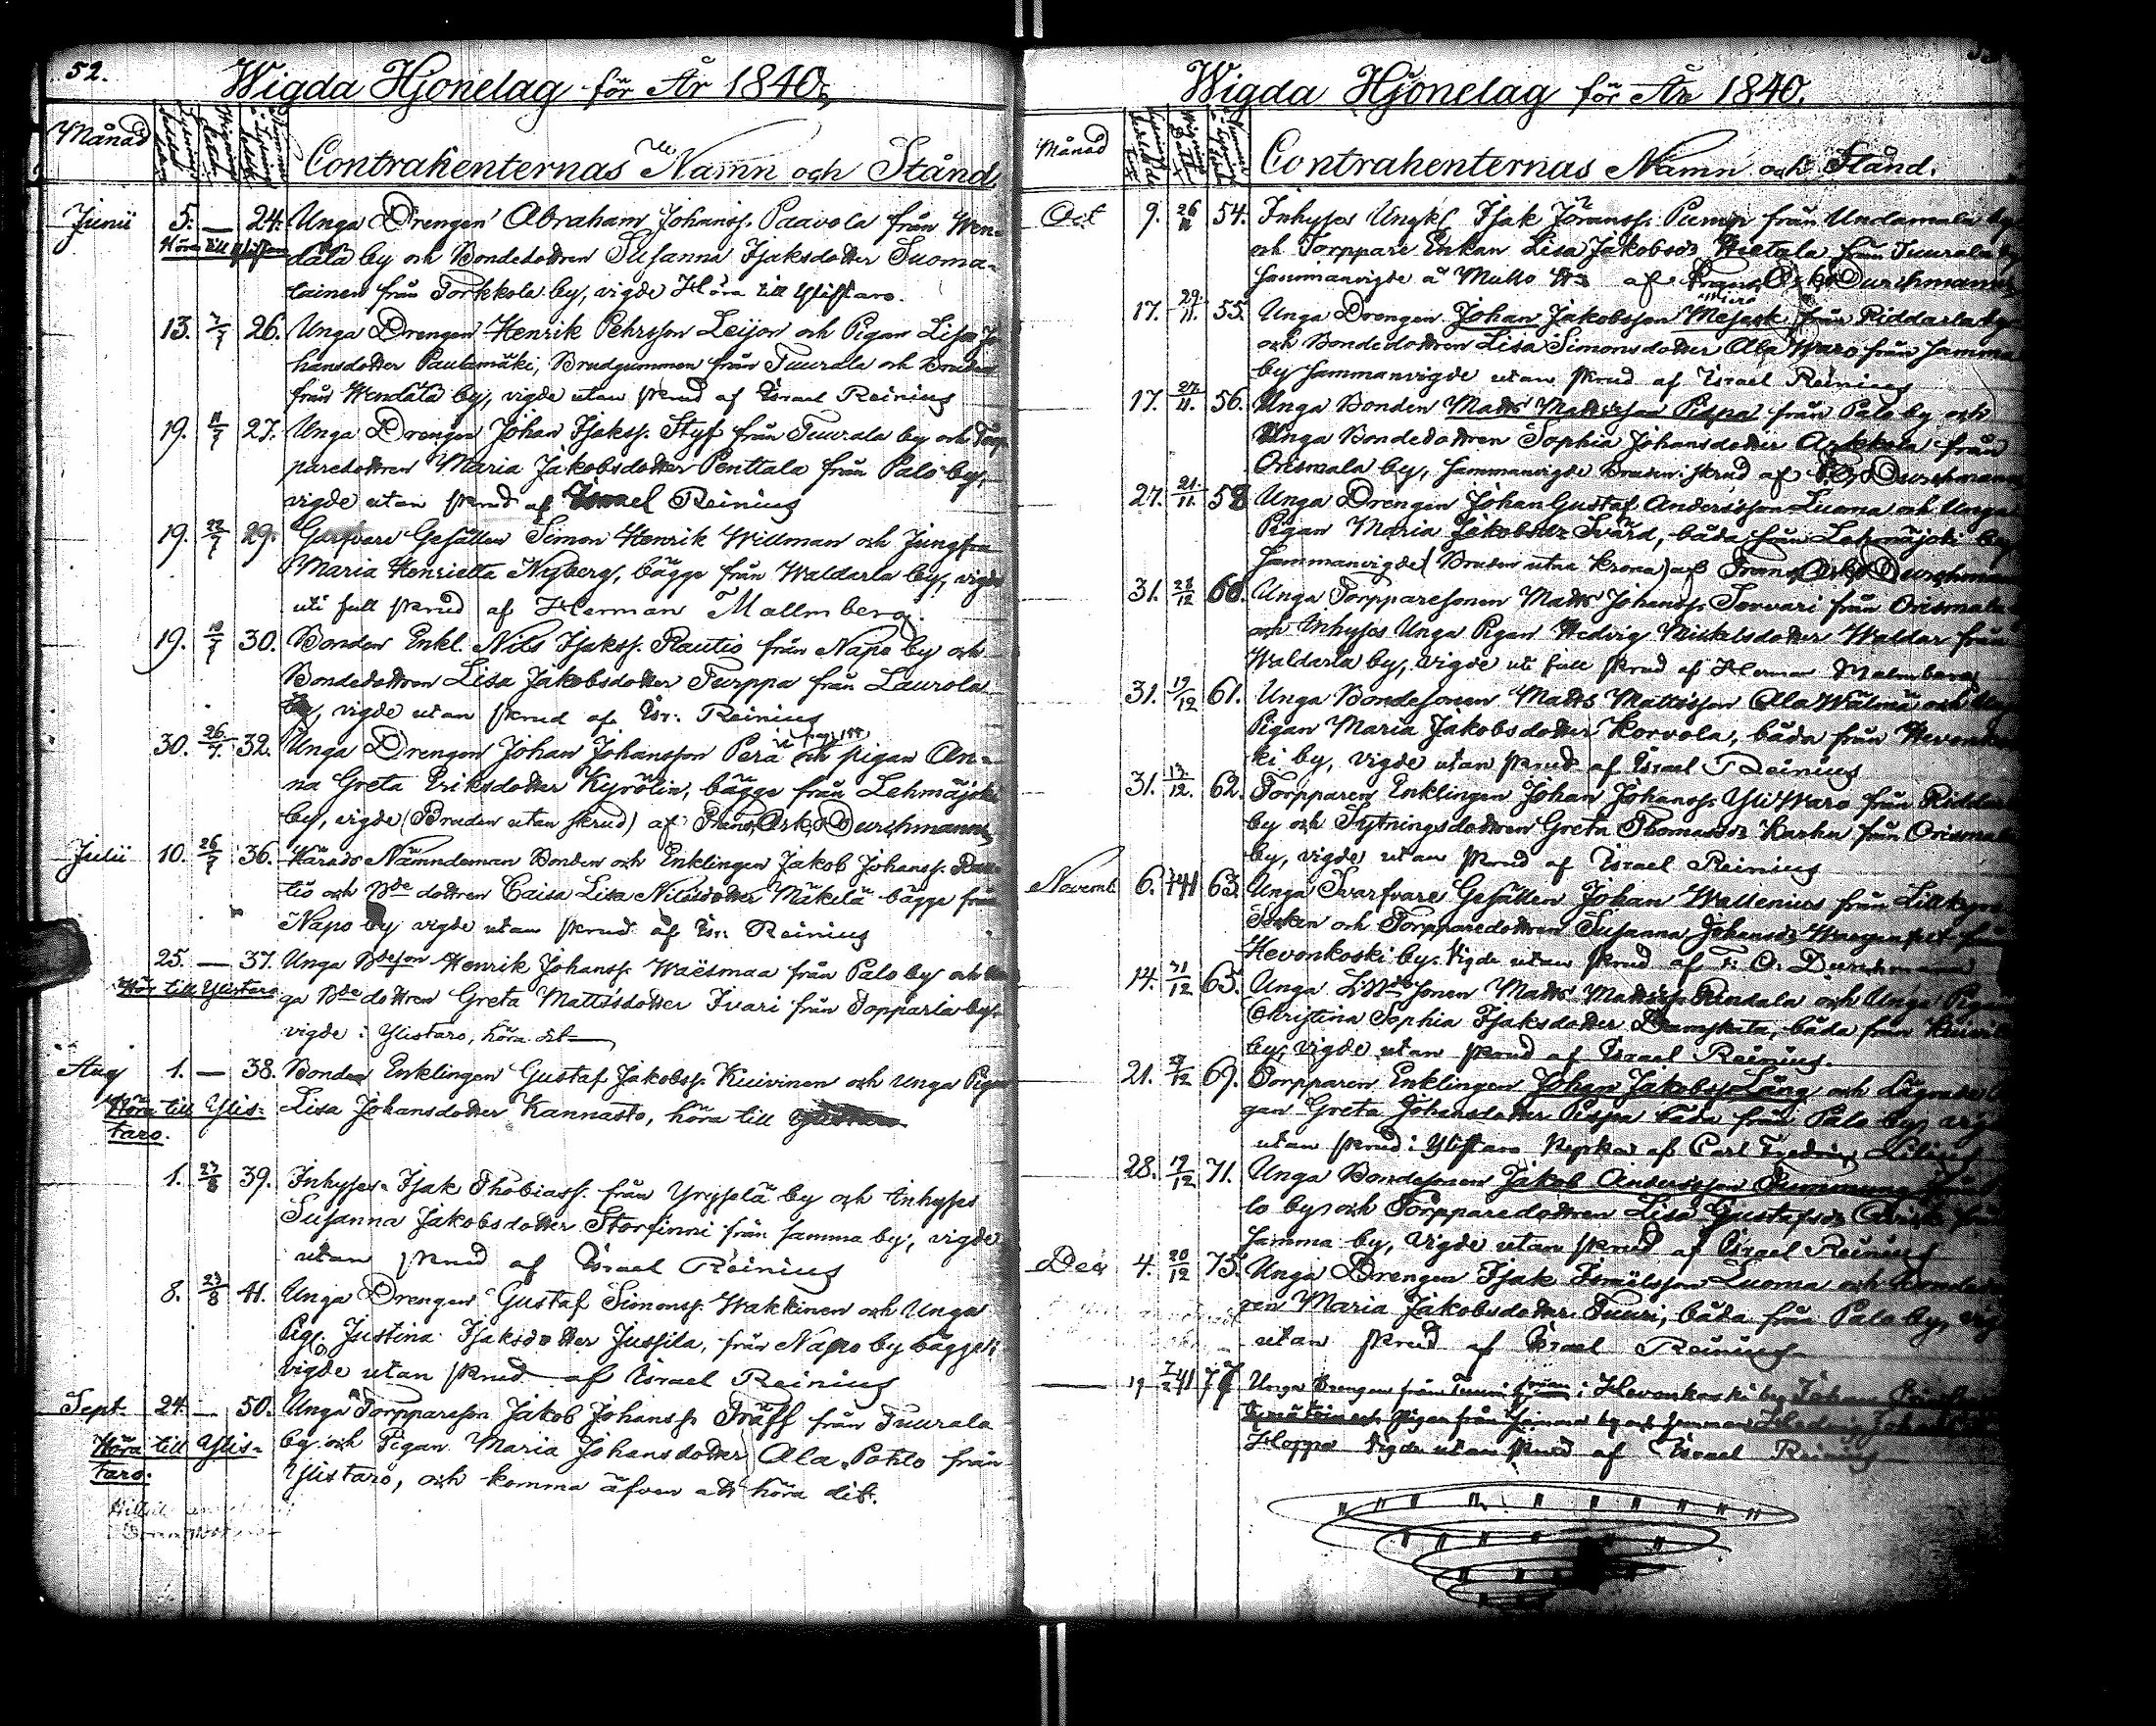 52.
Wigda Hjonelag för År 1840.
Månad
Contrahenternas Namn och Stånd.
Junii 5. — 24. Unga Drengen Abraham Johanss. Paavola från Wen-
Höra till Ylistaro
dälä by och Bondedottren Susanna Isaksdotter Suoma-
lainen från Torkkola by, vigde Höra till Ylistaro.
13. 26. Unga Drengen Henrik Pehrsson Leijon och Pigan Lisa Jo
hansdotter Pautamäki, Brudgummen från Tuurala och Bruden
från Wendälä by, vigde utan skrud af Israel Reinius
19. 27. Unga Drengen Johan Isakss. Styf från Tuurala by och Torp
paredottren Maria Jakobsdotter Penttala från Palo by,
vigde utan skrud af Israel Reinius
19. 22/7 29. Garfvare Gesällen Simon Henrik Willman och Jungfru
Maria Henrietta Nyberg, bägge från Waldarla by, vigde
uti full skrud af Herman Mallmberg.
19. 30. Bonden Enkl. Nils Isakss. Rautio från Napo by och
Bondedottren Lisa Jakobsdotter Turppa från Laurola
by, vigde utan skrud af Isr: Reinius
30. 26/7. 32. Unga Drengen Johan Johansson Pera och pigan An-
na Greta Eriksdotter Kyrölin, bägge från Lehmäjoki
by, vigde (Bruden utan skrud) af Frans Osk. Durchmann
Julii 10. 26/7 36. Härads Nämndeman Bonden och Enklingen Jakob Johanss. Rau-
tio och Bde dottren Caisa Lisa Nilsdotter Mäkelä bägge från
Napo by vigde utan skrud af Isr: Reinius
25. — 37. Unga Bdeson Henrik Johanss. Waësmaa från Palo by och Un
Hör till Ylistaro
ga Bde dottren Greta Mattsdotter Ivari från Topparla by,
vigde i Ylistaro, höra dit
Aug 1. — 38. Bonden Enklingen Gustaf Jakobss. Kuivinen och Unga Pigan
Höra till Ylis-
Lisa Johansdotter Kannasto, höra till Ylistaro
taro.
1. 23/8 39. Inhyses Isak Thobiass. från Yryselä by och Inhyses
Susanna Jakobsdotter Storfinni från samma by, vigde
utan skrud af Israel Reinius
8. 23/8 41. Unga Drengen Gustaf Simonss. Wakkinen och Unga
Pig. Justina Isaksdotter Jussila, från Napo by bägge
vigde utan skrud af Israel Reinius
Sept. 24. — 50. Unga Torppareson Jakob Johanss. Träff från Tuurala
Höra till Ylis-
by och Pigan Maria Johansdotter Ala Pohto från
taro.
Ylistaro, och komma äfven att höra dit.
Wigda Hjonelag för År 1840.
Månad
Contrahenternas Namn och Stånd.
Oct 9. 54. Inhyses Ungkl Isak Göranss. Pump från Undamala by
och Torppare Enkan Lisa Jakobsdr Wietala från Tuurala by
sammanvigde af Frans Osk. Durchmann
17. 29./11. 55. Unga Drengen Johan Jakobsson från Riddarla by
och Bondedottren Lisa Simonsdotter Ala Waro från samma
by sammanvigde utan skrud af Israel Reinius
17. 27/11. 56. Unga Bonden Matts Mattsson Pispa från Palo by och
Unga Bondedottren Sophia Johansdotter från
Orismala by, sammanvigde Bruden i skrud af F. O. Durchmann
27. 21/11. 58 Unga Drengen Johan Gustaf Andersson Luoma och Unga
Pigan Maria Jakobsdr Svärd, båda från Lehmäjoki by
sammanvigde (Bruden utan krona) af Frans Osk. Durchmann
31. 28/12 60. Unga Torpparesonen Matts Johanss. Torvari från Orismala
och Inhyses Unga Pigan Hedvig Mickelsdotter Waldar från
Waldarla by, vigde uti full skrud af Herman Malmberg
31. 19/12 61. Unga Bondesonen Matts Mattsson Ala Wälimä och Unga
Pigan Maria Jakobsdotter Korvola, båda från Hevonkos
ki by, vigde utan skrud af Israel Reinius
31. 13./12. 62. Torpparen Enklingen Johan Johanss. Yli Waro från Riddarla
by och Sytningsdottren Greta Thomasdr Karhu från Orismala
by, vigde utan skrud af Israel Reinius
Novemb 6. 63. Unga Svarfvare Gesällen Johan Wallenius från Lillkyro
Socken och Torpparedottren Susanna Johansdr från
Hevonkoski by. Vigde utan skrud af F: O: Durchmann
14. 31/12 65. Unga sonen Matts Mattss. Rindala och Unga Pigan
Christina Sophia Isaksdotter båda från
by, vigde utan skrud af Israel Reinius.
21. 27/12 69. Torpparen Enklingen Johan Jakobss. Lång och
gan Greta Johansdotter Pispa båda från Palo by, vigde
utan skrud i Ylistaro Kyrka af Carl Fredrik Lilius
28. 19/12 71. Unga Bondesonen Jakob Andersson från
lo by och Torpparedottren Lisa Gustafsdr från
samma by, vigde utan skrud af Israel Reinius
Dec 4. 20/12 75. Unga Drengen Isak Ismaëlsson Luoma och Bondedott
ren Maria Jakobsdotter Tuuri, båda från Palo by, vig
utan skrud af Israel Reinius
19 Unga Drengen från i Hevonkoski by Johan
pigan från samma by och Hedvig Johans
Hoppa Vigde utan skrud af Israel Reinius